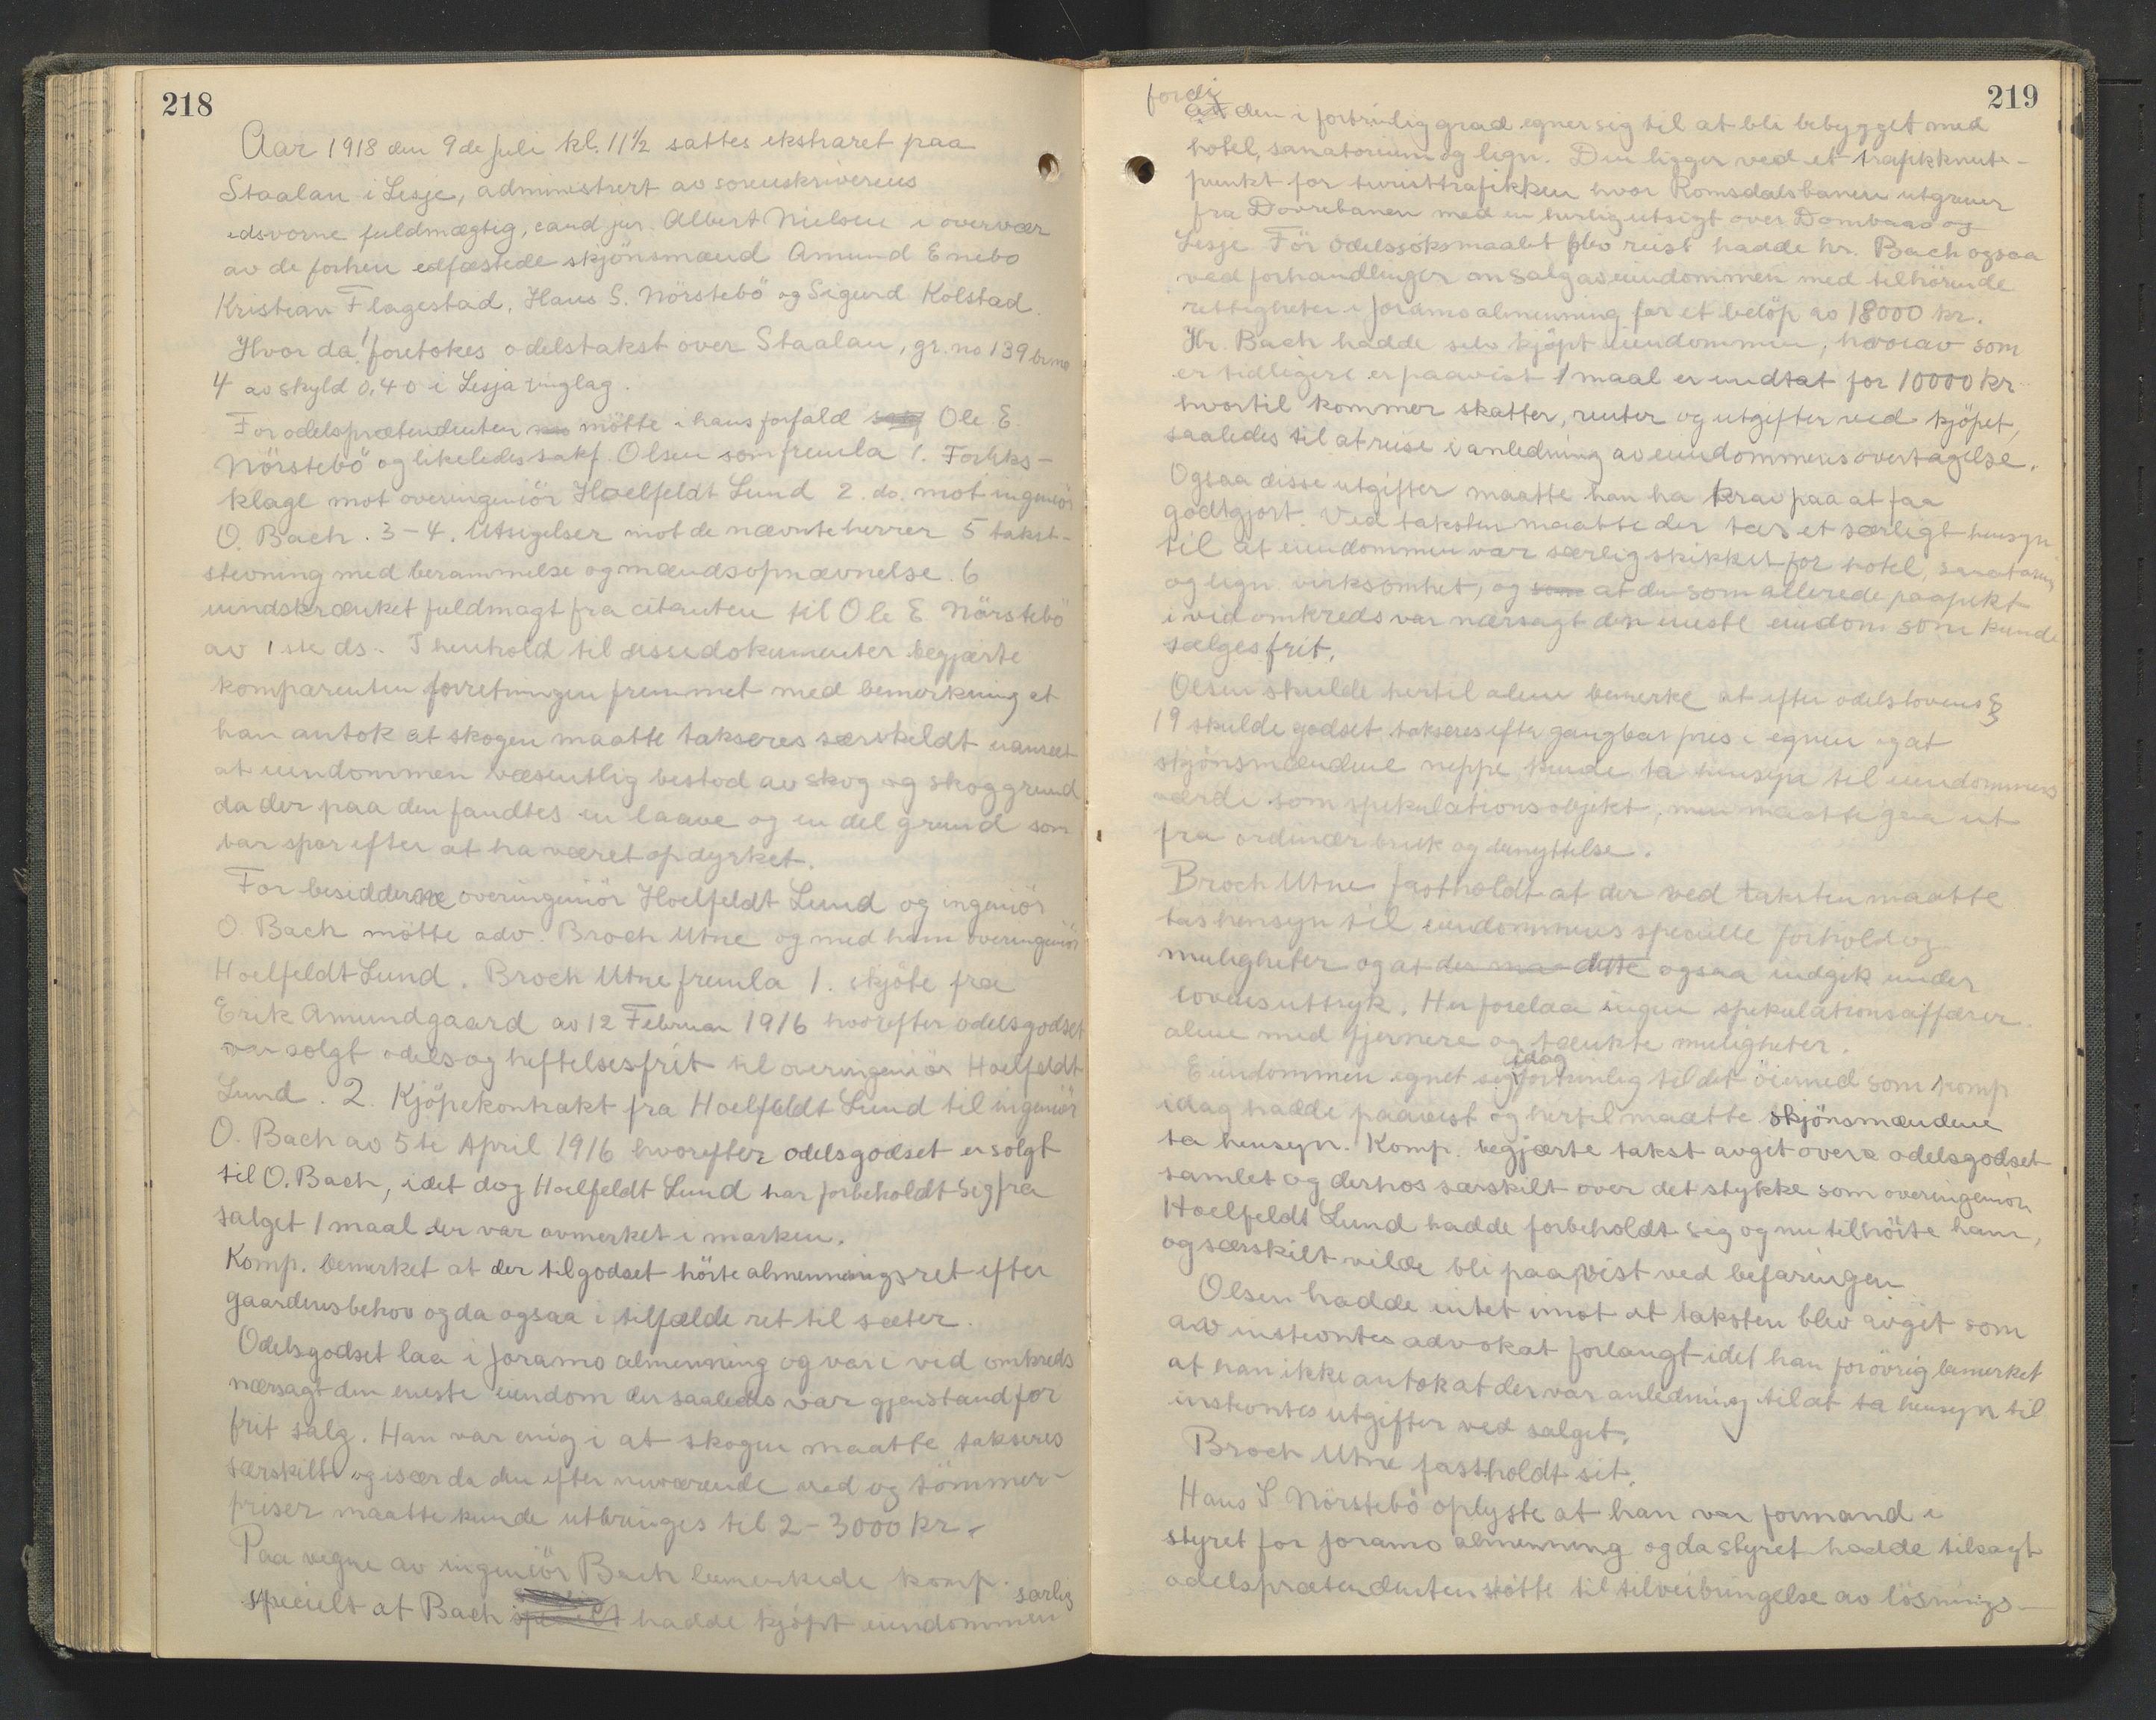 218
Aar 1918 den 9de Juli kl. 11½ sattes ekstraret paa
Staalan i Lesje, administrert av sorenskriverens
edsvorne fuldmægtig, cand jur. Albert Nielsen i overvær
av de forhen edfæstede skjönsmænd Amund Enebo
Kristian Flagestad, Hans S. Nörstebö og Sigurd Kolstad.
Hvor da! foretokes odelstakst over Staalan, gr. no 139 br no
4 av skyld 0,40 i Lesja tinglag.
For odelsprætendenten mötte i hans forfald Ole E.
Nörstebö og likeledes sakf. Olsen som fremla 1. Forliks-
klage mot overingeniör Hoelfeldt Lund 2. do. mot ingeniör
O. Bach. 3-4. Utsigelser mot de nævnte herrer 5 takst-
stevning med berammelse og mændsopnævnelse. 6
uindskrænket fuldmagt fra citanten til Ole E. Nörstebö
av 1ste ds. I henhold til disse dokumenter begjærte
komparenten forretningen fremmet med bemerkning at
han antok at skogen maatte takseres særskildt uanseet
at eiendommen væsentlig bestod av skog og skoggrund
da der paa den fandtes en laave og en del grund som
bar spor efter at ha været opdyrket.
For besidderne overingeniör Hoelfeldt Lund og ingeniör
O. Bach mötte adv. Broch Utne og med ham overingeniör
Hoelfeldt Lund. Broch Utne fremla 1. skjöte fra
Erik Amundgaard av 12 Februar 1916 hvorefter odelsgodset
var solgt odels og heftelsesfrit til overingeniör Hoelfeldt
Lund. 2. Kjöpekontrakt fra Hoelfeldt Lund til ingeniör
O. Bach av 5te April 1916 hvorefter odelsgodset er solgt
til O. Bach, idet dog Hoelfeldt Lund har forbeholdt sig fra
salget 1 maal der var avmerket i marken.
Komp. bemerket at der til godset hörte almenningsret efter
gaardens behov og da ogsaa i tilfælde ret til sæter.
Odelsgodset laa i Joramo almenning og var i vid omkreds
nærsagt den eneste eiendom der saaledes var gjenstand for
frit salg. Han var enig i at skogen maatte takseres
særskilt og især da den efter nuværende ved og tömmer-
priser maatte kunde utbringes til 2-3000 kr.
Paa vegne av ingeniör Bach bemerkede komp.
specielt at Bach specielt hadde kjöpt eiendommen særlig
219
fordi
at den i fortrinlig grad egner sig til at bli bebygget med
hotel, sanatorium og lign. Den ligger ved et trafikknute-
punkt for turisttrafikken hvor Romsdalsbanen utgrener
fra Dovrebanen med en herlig utsigt over Dombaas og
Lesje. För odelssöksmaalet blev reist hadde hr. Bach ogsaa
ved forhandlinger om salg av eiendommen med tilhörende
rettigheter i Joramo almenning for et belöp av 18000 kr.
Hr. Bach hadde selv kjöpt eiendommen, hvorav som
er tidligere er paavist 1 maal er undtat for 10000 kr
hvortil kommer skatter, renter og utgifter ved kjöpet,
saaledes til at reise i anledning av eiendommens overtagelse.
Ogsaa disse utgifter maatte han ha krav paa at faa
godtgjort. Ved taksten maatte der tas et særligt hensyn
til at eiendommen var særlig skikket for hotel, sanatorie
og lign virksomhet, og som at den som allerede paapekt
i vid omkreds var nærsagt den eneste eiendom som kunde
sælges frit.
Olsen skulde hertil alene bemerke at efter odelslovens §
19 skulde godset takseres efter gangbar pris i egnen og at
skjönsmændene neppe kunde ta hensyn til eiendommens
værdi som spekulationsobjekt, men maatte gaa ut
fra ordinær bruk og benyttelse.
Broch Utne fastholdt at der ved taksten maatte
tas hensyn til eiendommens specielle forhold og
muligheter og at der maa dette ogsaa indgik under
lovens uttryk. Her forelaa ingen spekulationsaffærer
alene med fjernere og tænkte muligheter.
idag
Eiendommen egnet sig fortrinlig til det öiemed som komp
idag hadde paavist og hertil maatte skjönsmændene
ta hensyn. Komp. begjærte takst avget over odelsgodset
samlet og derhos særskilt over det stykke som overingeniör
Hoelfeldt Lund hadde forbeholdt sig og nu tilhörte ham,
og særskilt vilde bli paavist ved befaringen
Olsen hadde intet imot at taksten blev avgit som
av instevntes advokat forlangt idet han forövrig bemerket
at han ikke antok at der var anledning til at ta hensyn til
instevntes utgifter ved salget.
Broch Utne fastholdt sit.
Hans S Nörstebö oplyste at han var formand i
styret for Joramo almenning og da styret hadde tilsagt
odelsprætendenten stötte til tilveibringelse av lösnings-